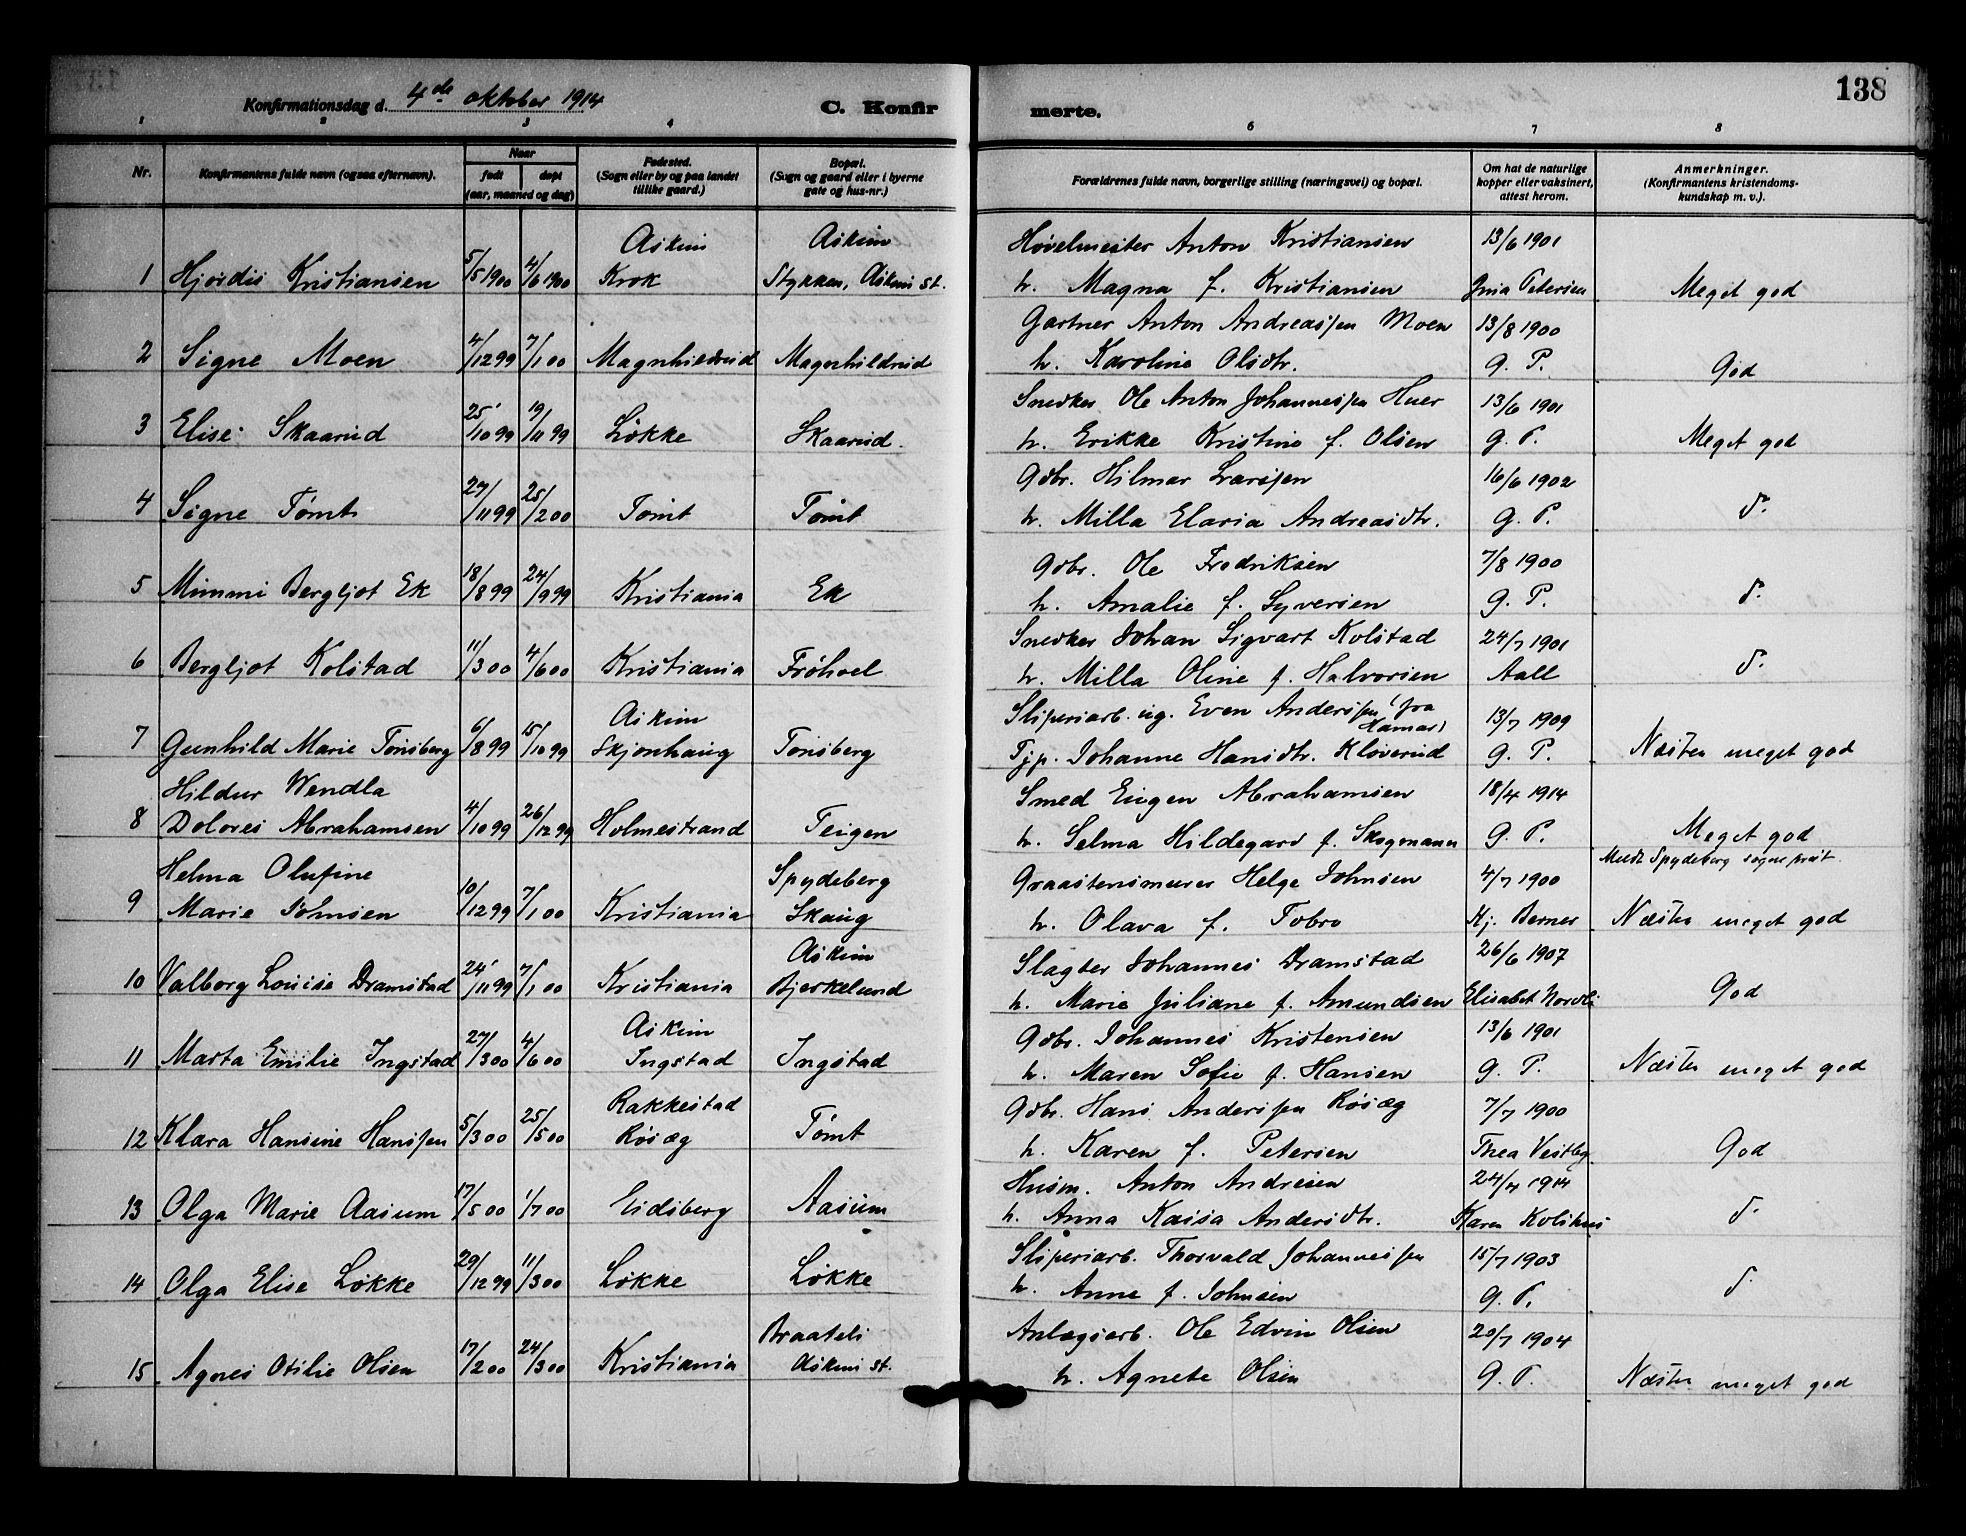 138
Konfirmationsdag d. 4de oktober 1914
C. Konfir
merte.
1 2 3 4 6 7 8
Nr.
Konfirmantens fulde navn (ogsaa efternavn).
Naar
født
døpt
(aar, maaned og dag)
Fødested.
(Sogn eller by og paa landet
tillike gaard.)
Bopæl.
(Sogn og gaard eller i byerne
gate og hus-nr.)
Forældrenes fulde navn, borgerlige stilling (næringsvei) og bopæl.
Om hat de naturlige
kopper eller vaksinert,
attest herom.
Anmerkninger.
(Konfirmantens kristendoms-
kundskap m. v.).
Askim Askim Høvelmester Anton Kristiansen 13/6 1901
1 Hjørdis Kristiansen 5/5 1900 4/6 1900 Krok Stykken, Askim st. h. Magna f. Kristiansen Gina Petersen Meget god
Gartner Anton Andreassen Moen 13/8 1900
2 Signe Moen 4/12 99 7/1 00 Magnhildrud Magnhildrud h. Karoline Olsdtr. G. P. God
Snedker Ole Anton Johannessen Huer 13/6 1901
3 Elise Skaarud 25/10 99 19/11 99 Løkke Skaarud. h. Erikke Kristine f. Olsen G. P. Meget god
Gdbr. Hilmar Larssen 16/6 1902
4 Signe Tømt 27/11 99 25/2 00 Tømt Tømt h. Milla Elaria Andreasdtr. G. P. d.
Gdbr. Ole Fredriksen 7/8 1900
5 Mimmi Bergljot Ek 18/8 99 24/9 99 Kristiania Ek h. Amalie f. Syversen G. P. d.
Snedker Johan Sigvart Kolstad 24/7 1901
6 Bergljot Kolstad 11/3 00 4/6 00 Kristiania Frøhoel h. Milla Oline f. Halvorsen Aall d.
Askim Sliperiarb. ug. Even Anderssen (fra 13/7 1909
Hamar)
7 Gunhild Marie Tonsberg 6/8 99 15/10 99 Skjønhaug Tonsberg Tjp. Johanne Hansdtr. Kløverud G. P. Næsten meget god
Hildur Wendla Smed Eugen Abrahamsen 18/4 1914
8 Dolores Abrahamsen 4/10 99 26/12 99 Holmestrand Teigen h. Selma Hildegard f. Skogmann G. P. Meget god
Meldt Spydeberg sogneprest.
Helma Olufine Spydeberg Graastensmurer Helge Johnsen 4/7 1900
9 Marie Johnsen 10/12 99 7/1 00 Kristiania Skaug h. Olava f. Tobro Kj. Berner Næsten meget god
Askim Slagter Johannes Dramstad 26/6 1907
10 Valborg Louise Dramstad 24/11 99 7/1 00 Kristiania Bjerkelund h. Marie Juliane f. Amundsen Elisabet Nordli God
Askim Gdbr. Johannes Kristensen 13/6 1901
11 Marta Emilie Ingstad 27/3 00 4/6 00 Ingstad Ingstad h. Maren Sofie f. Hansen G. P. Næsten meget god
Rakkestad Gdbr. Hans Anderssen Røsæg 7/7 1900
12 Klara Hansine Hanssen 5/3 00 25/5 00 Røsæg Tømt h. Karen f. Petersen Thea Vestbg. God
Husm. Anton Andresen 24/7 1914
13 Olga Marie Aasum 17/5 00 1/7 00 Eidsberg Aasum h. Anna Kaisa Andersdtr. Karen Kolshus d.
Sliperiarb. Thorvald Johannessen 15/7 1903
14 Olga Elise Løkke 29/12 99 11/3 00 Løkke Løkke h. Anne f. Johnsen G. P. d.
Braateli Anlægsarb. Ole Edvin Olsen 20/7 1904
15 Agnes Otilie Olsen 17/2 00 24/3 00 Kristiania Askim st. h. Agnete Olsen G. P. Næsten meget god